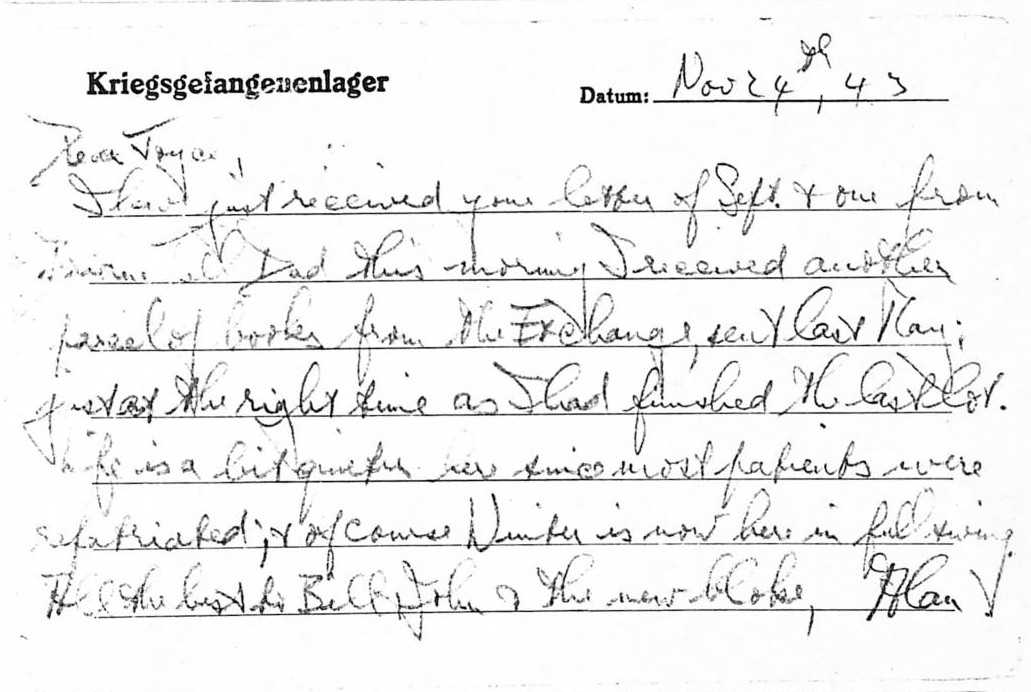 Kriegsgefangenenlager
Datum: Nov 24th, 43
Dear Joyce,
I have just received your letter of Sept. & one from
Dad this morning I received another
parcel of books from the Exchange, sent last May;
just at the right time as I had finished the last lot.
Life is a bit quieter here since most patients were
repatriated; & of course Winter is now here in full swing.
All the best to Bill, John & the new bloke, Alan